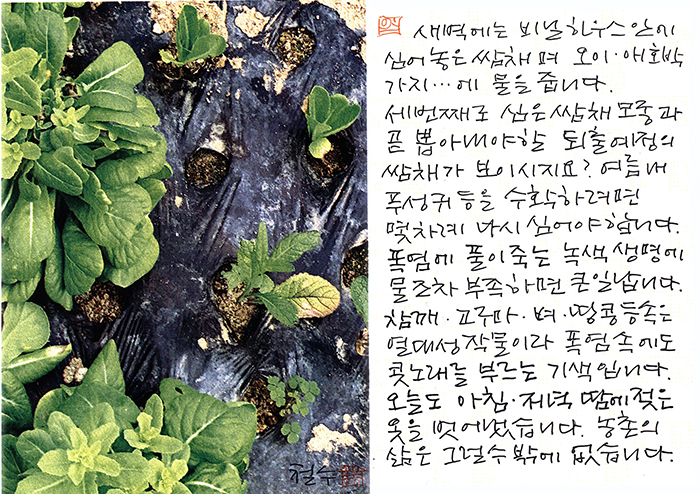 새벽에는 비닐하우스 안에
심어 놓은 쌈채 며 오이·애호박
가지…에 물을 줍니다.
세번째로 심은 쌈채 모종과
곧 뽑아내야할 퇴출예정의
쌈채가 보이시지요? 여름내
푸성귀 등을 수확하려면
몇차례 다시 심어야합니다.
폭염에 풀이죽는 녹색 생명에
물조차 부족하면 큰일납니다.
참깨·고구마·벼·땅콩등속은
열대성작물이라 폭염속에도
콧노래를 부르는 기색입니다.
오늘도 아침·저녁 땀에젖은
옷을 벗어냈습니다. 농촌의
삶은 그럴수밖에 없습니다.
철수